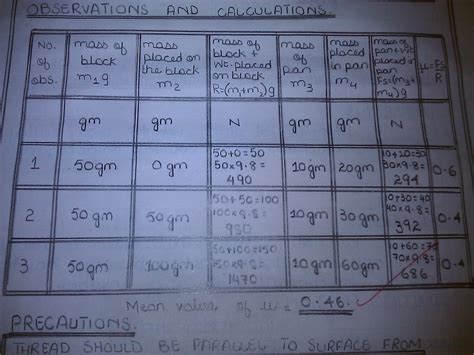 OBSERVATIONS AND CALCULATIONS.
No. of obs.
mass of block m₁g
mass placed on the block m₂
mass of block + Wt. placed on block R=(m₁+m₂)g
mass of pan m₃
mass placed in pan m₄
mass of pan+wt placed in pan Fs=(m₃+m₄)g
μ=Fs/R
gm gm N gm gm N
1 50gm 0gm 50+0=50 50x9.8= 490 10gm 20gm 10+20=30 30x9.8= 294 0.6
2 50gm 50gm 50+50=100 100x9.8= 980 10gm 30gm 10+30=40 40x9.8= 392 0.4
3 50gm 100gm 50+100=150 150x9.8= 1470 10gm 60gm 10+60=70 70x9.8= 686 0.4
Mean value of μ = 0.46.
PRECAUTIONS.
THREAD SHOULD BE PARALLEL TO SURFACE FROM